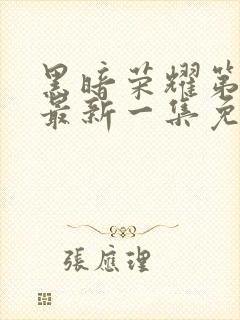 黑暗荣耀第
最新一集免
張應理